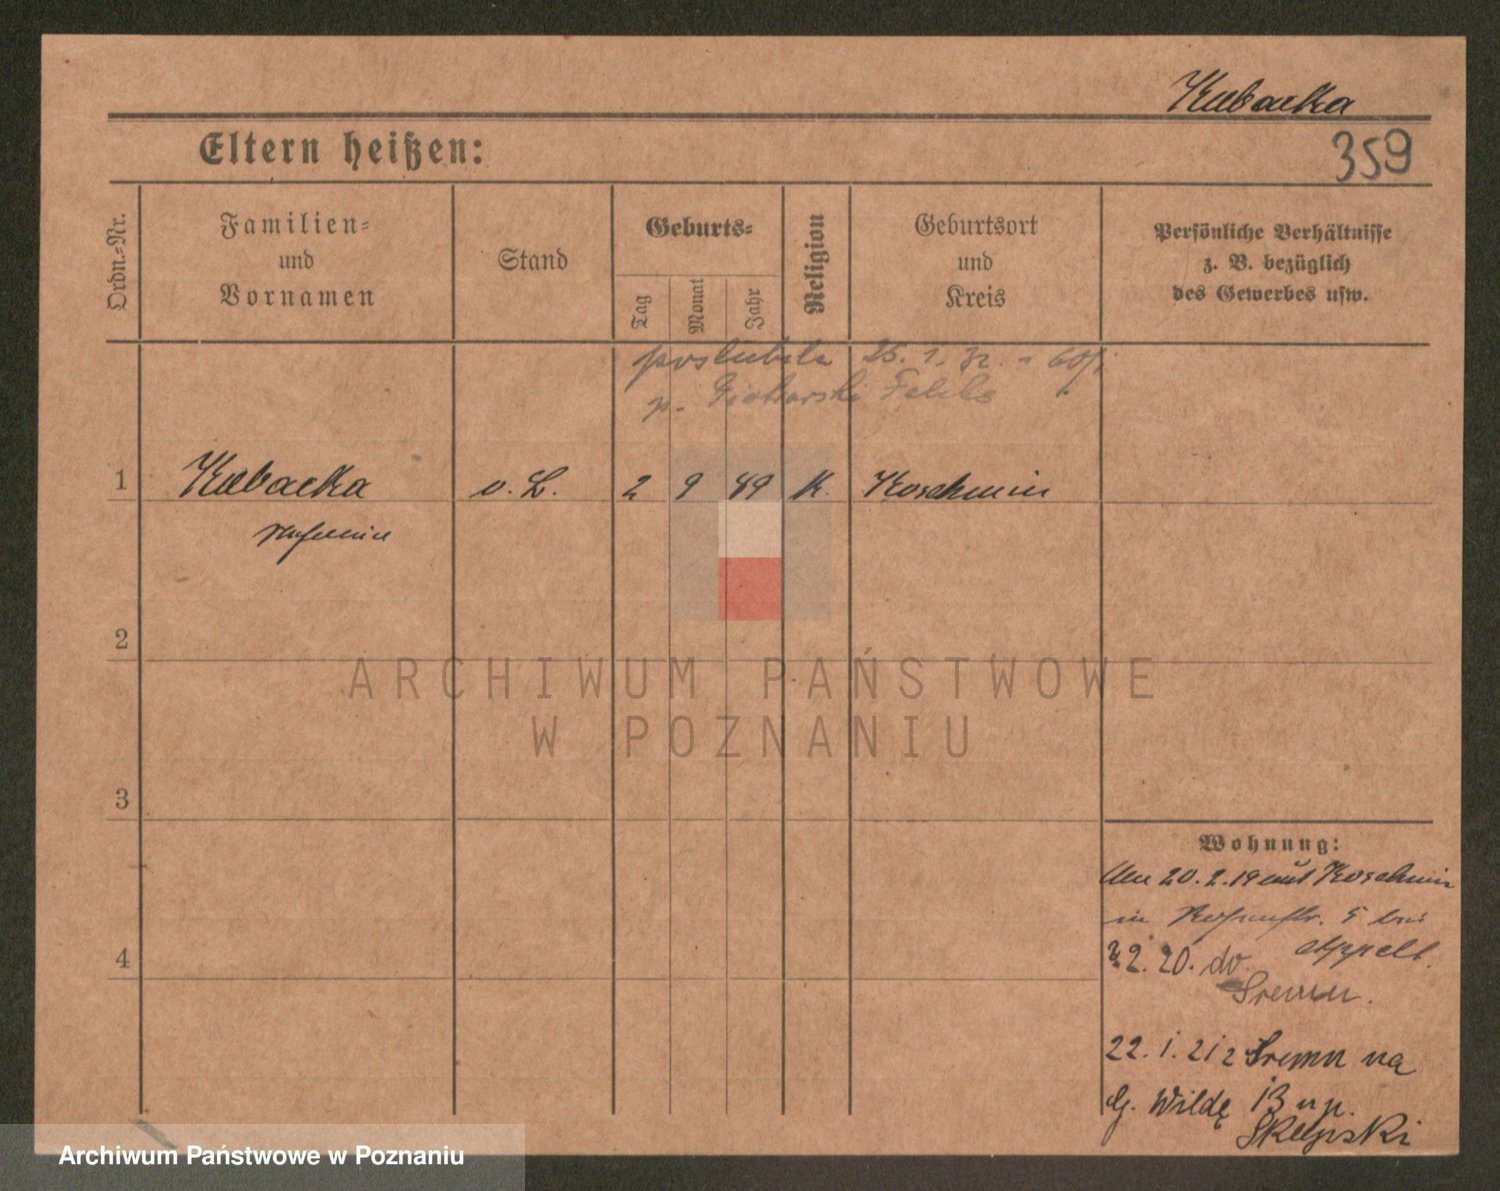 Kubacka
359
Eltern heißen:
Ordn.-Nr.
Familien-
und
Vornamen
Stand
Geburts-
Tag
Monat
Jahr
Religion
Geburtsort
und
Kreis
Persönliche Verhältnisse
z. B. bezüglich
des Gewerbes usw.
poslubiła 25. 1.
p. Piotrowski Feliks
1 Kubacka o. L. 2 9 K. Koschmin
2
ARCHIWUM PAŃSTWOWE
W POZNANIU
3
Wohnung:
Am 20.2.19 aus Koschmin
in 5 bei
4
2. 20. do
Appelt.
Sremu.
22. 1. 21 z Sremu na
G. Wildę 13 u p.
Skupski
Archiwum Państwowe w Poznaniu